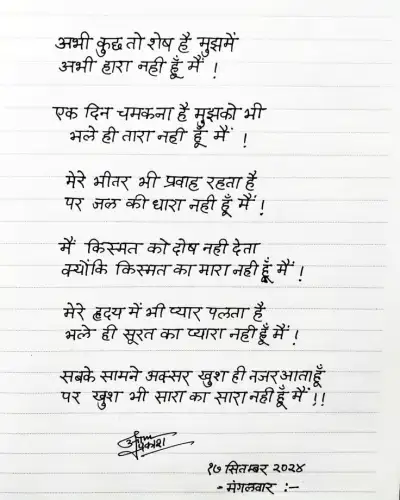 अभी कुछ तो शेष है मुझमें
अभी हारा नही हूँ मैं !
एक दिन चमकना है मुझको भी
भले ही तारा नही हूँ मैं !
मेरे भीतर भी प्रवाह रहता है
पर जल की धारा नही हूँ मैं !
मैं किस्मत को दोष नही देता
क्योंकि किस्मत का मारा नही हूँ मैं !
मेरे हृदय में भी प्यार पलता है
भले ही सूरत का प्यारा नही हूँ मैं !
सबके सामने अक्सर खुश ही नजर आता हूँ
पर खुश भी सारा का सारा नही हूँ मैं !!
प्रकाश
१७ सितम्बर २०२४
- मंगलवार :-